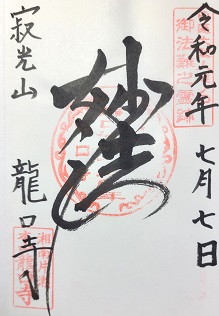 令和元年 七月七日
御法難之霊跡
妙法
寂光山 龍口寺